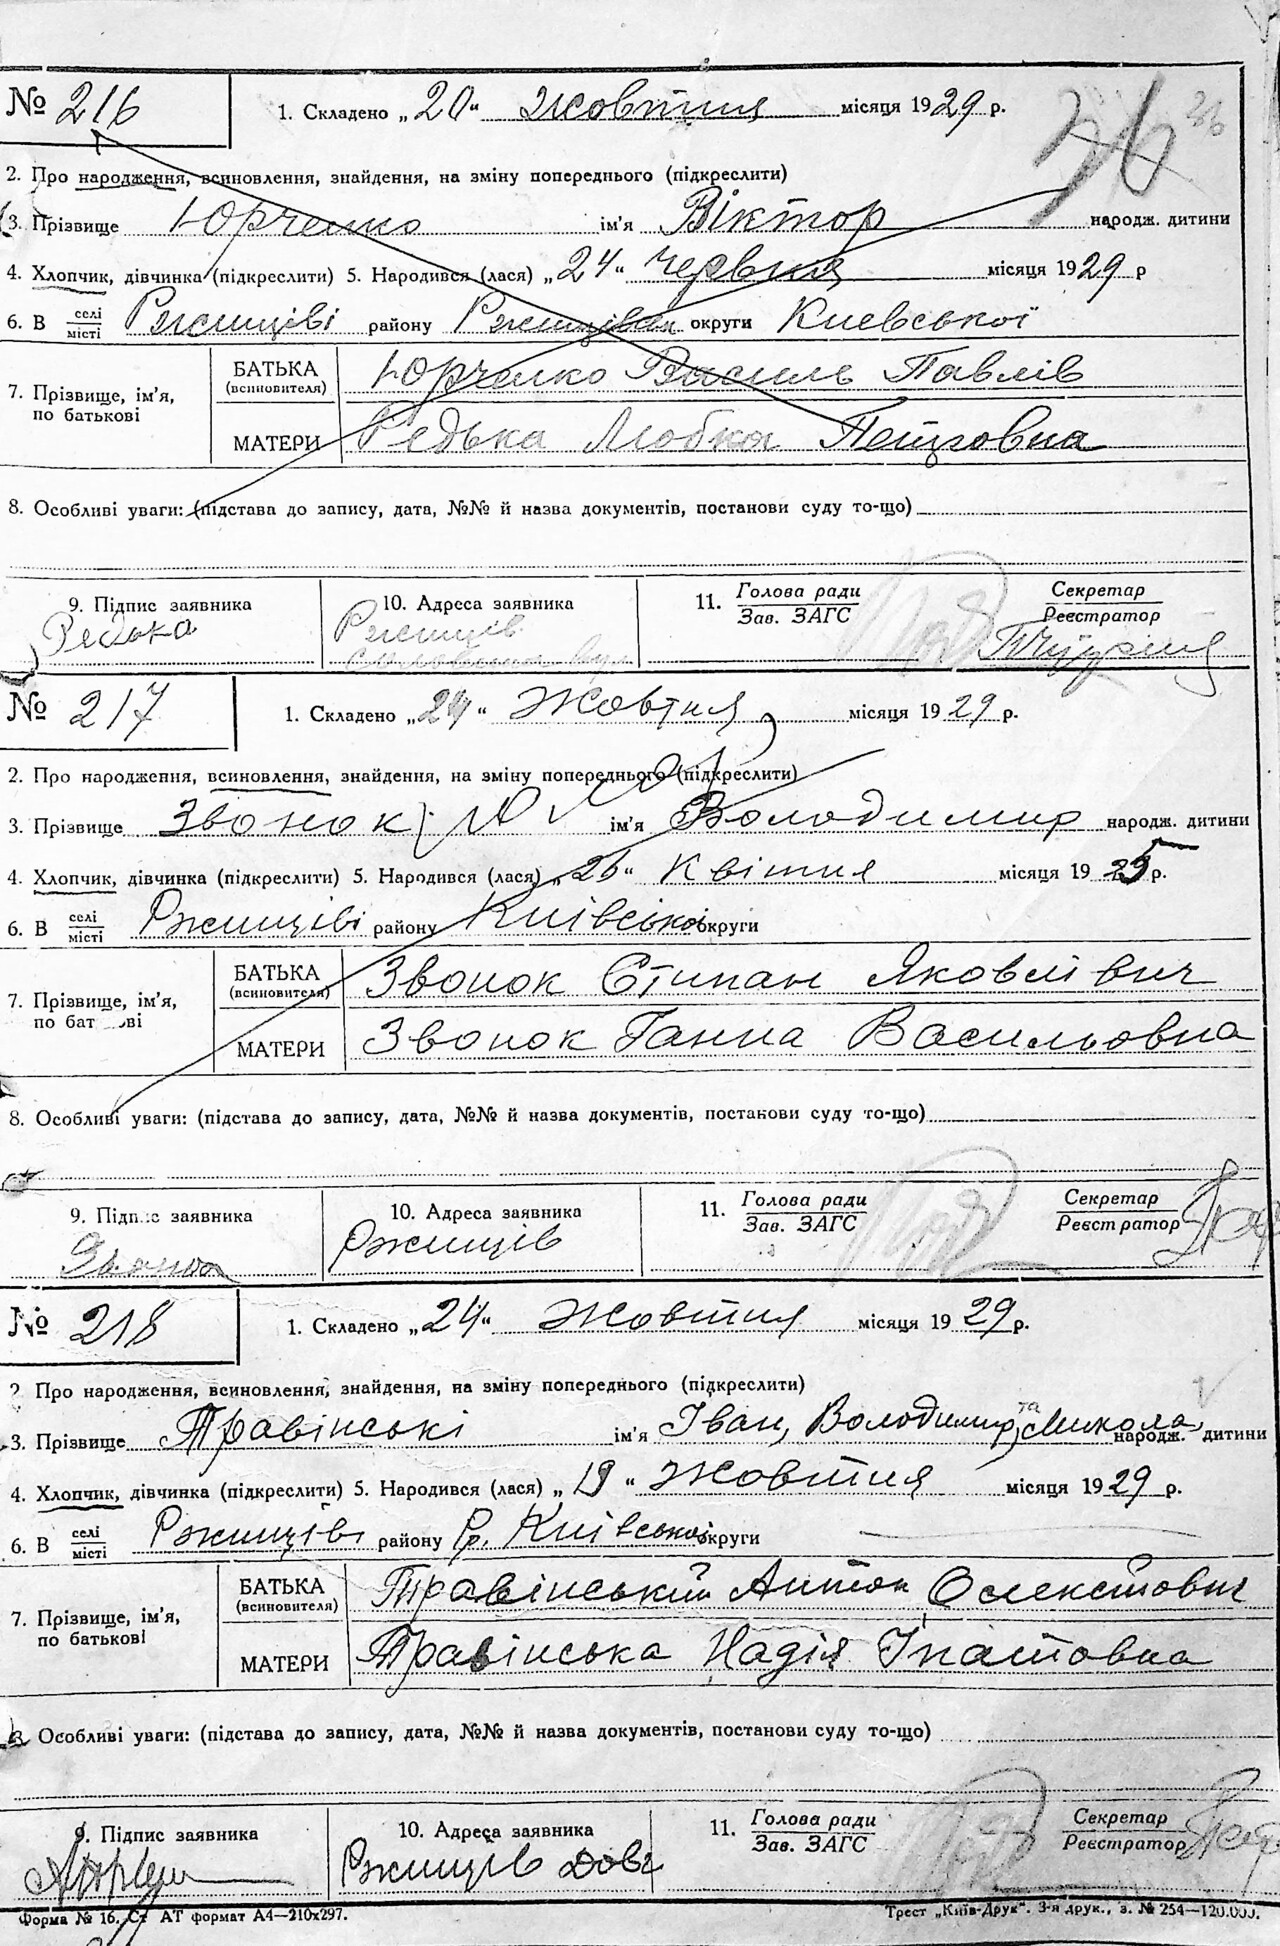 № 216
1. Складено „20“ жовтня місяця 1929 р.
2. Про народження, всиновлення, знайдення, на зміну попереднього (підкреслити)
3. Прізвище Юрченко ім'я Віктор народж. дитини
4. Хлопчик, дівчинка (підкреслити) 5. Народився (лася) „24“ червня місяця 1929 р
6. В селі місті Ржищіві району Ржищівськ округи Киевської
7. Прізвище, ім'я, по батькові
БАТЬКА (всиновителя) Юрченко Василь Павлів
МАТЕРИ Редька Любка Петровна
8. Особливі уваги: (підстава до запису, дата, №№ й назва документів, постанови суду то-що)
9. Підпис заявника Редька
10. Адреса заявника Ржищів
11. Голова ради Зав. ЗАГС
Секретар Реєстратор
№ 217
1. Складено „24“ Жовтня місяця 1929 р.
2. Про народження, всиновлення, знайдення, на зміну попереднього (підкреслити)
3. Прізвище Звонок ім'я Володимир народж. дитини
4. Хлопчик, дівчинка (підкреслити) 5. Народився (лася) „26“ Квітня місяця 1925 р.
6. В селі місті Ржищіві району Київської округи
7. Прізвище, ім'я, по бат ові
БАТЬКА (всиновителя) Звонок Стипан Яковлівич
МАТЕРИ Звонок Ганна Васильовна
8. Особливі уваги: (підстава до запису, дата, №№ й назва документів, постанови суду то-що)
9. Підпис заявника
10. Адреса заявника Ржищів
11. Голова ради Зав. ЗАГС
Секретар Реєстратор
№ 218
1. Складено „24“ Жовтня місяця 1929 р.
2 Про народження, всиновлення, знайдення, на зміну попереднього (підкреслити)
3. Прізвище Травінські ім'я Іван, Володимир, та Микола народж. дитини
4. Хлопчик, дівчинка (підкреслити) 5. Народився (лася) „19“ Жовтня місяця 1929 р.
6. В селі місті Ржищіві району Р. Київської округи
7. Прізвище, ім'я, по батькові
БАТЬКА (всиновителя) Травінський Антон Олекстович
МАТЕРИ Травінська Надія Ігнатовна
8 Особливі уваги: (підстава до запису, дата, №№ й назва документів, постанови суду то-що)
9. Підпис заявника
10. Адреса заявника Ржищів
11. Голова ради Зав. ЗАГС
Секретар Реєстратор
Форма № 16. Ст АТ формат А4—210x297.
Трест „Київ-Друк“. 3-я друк., з. № 254—120.000.